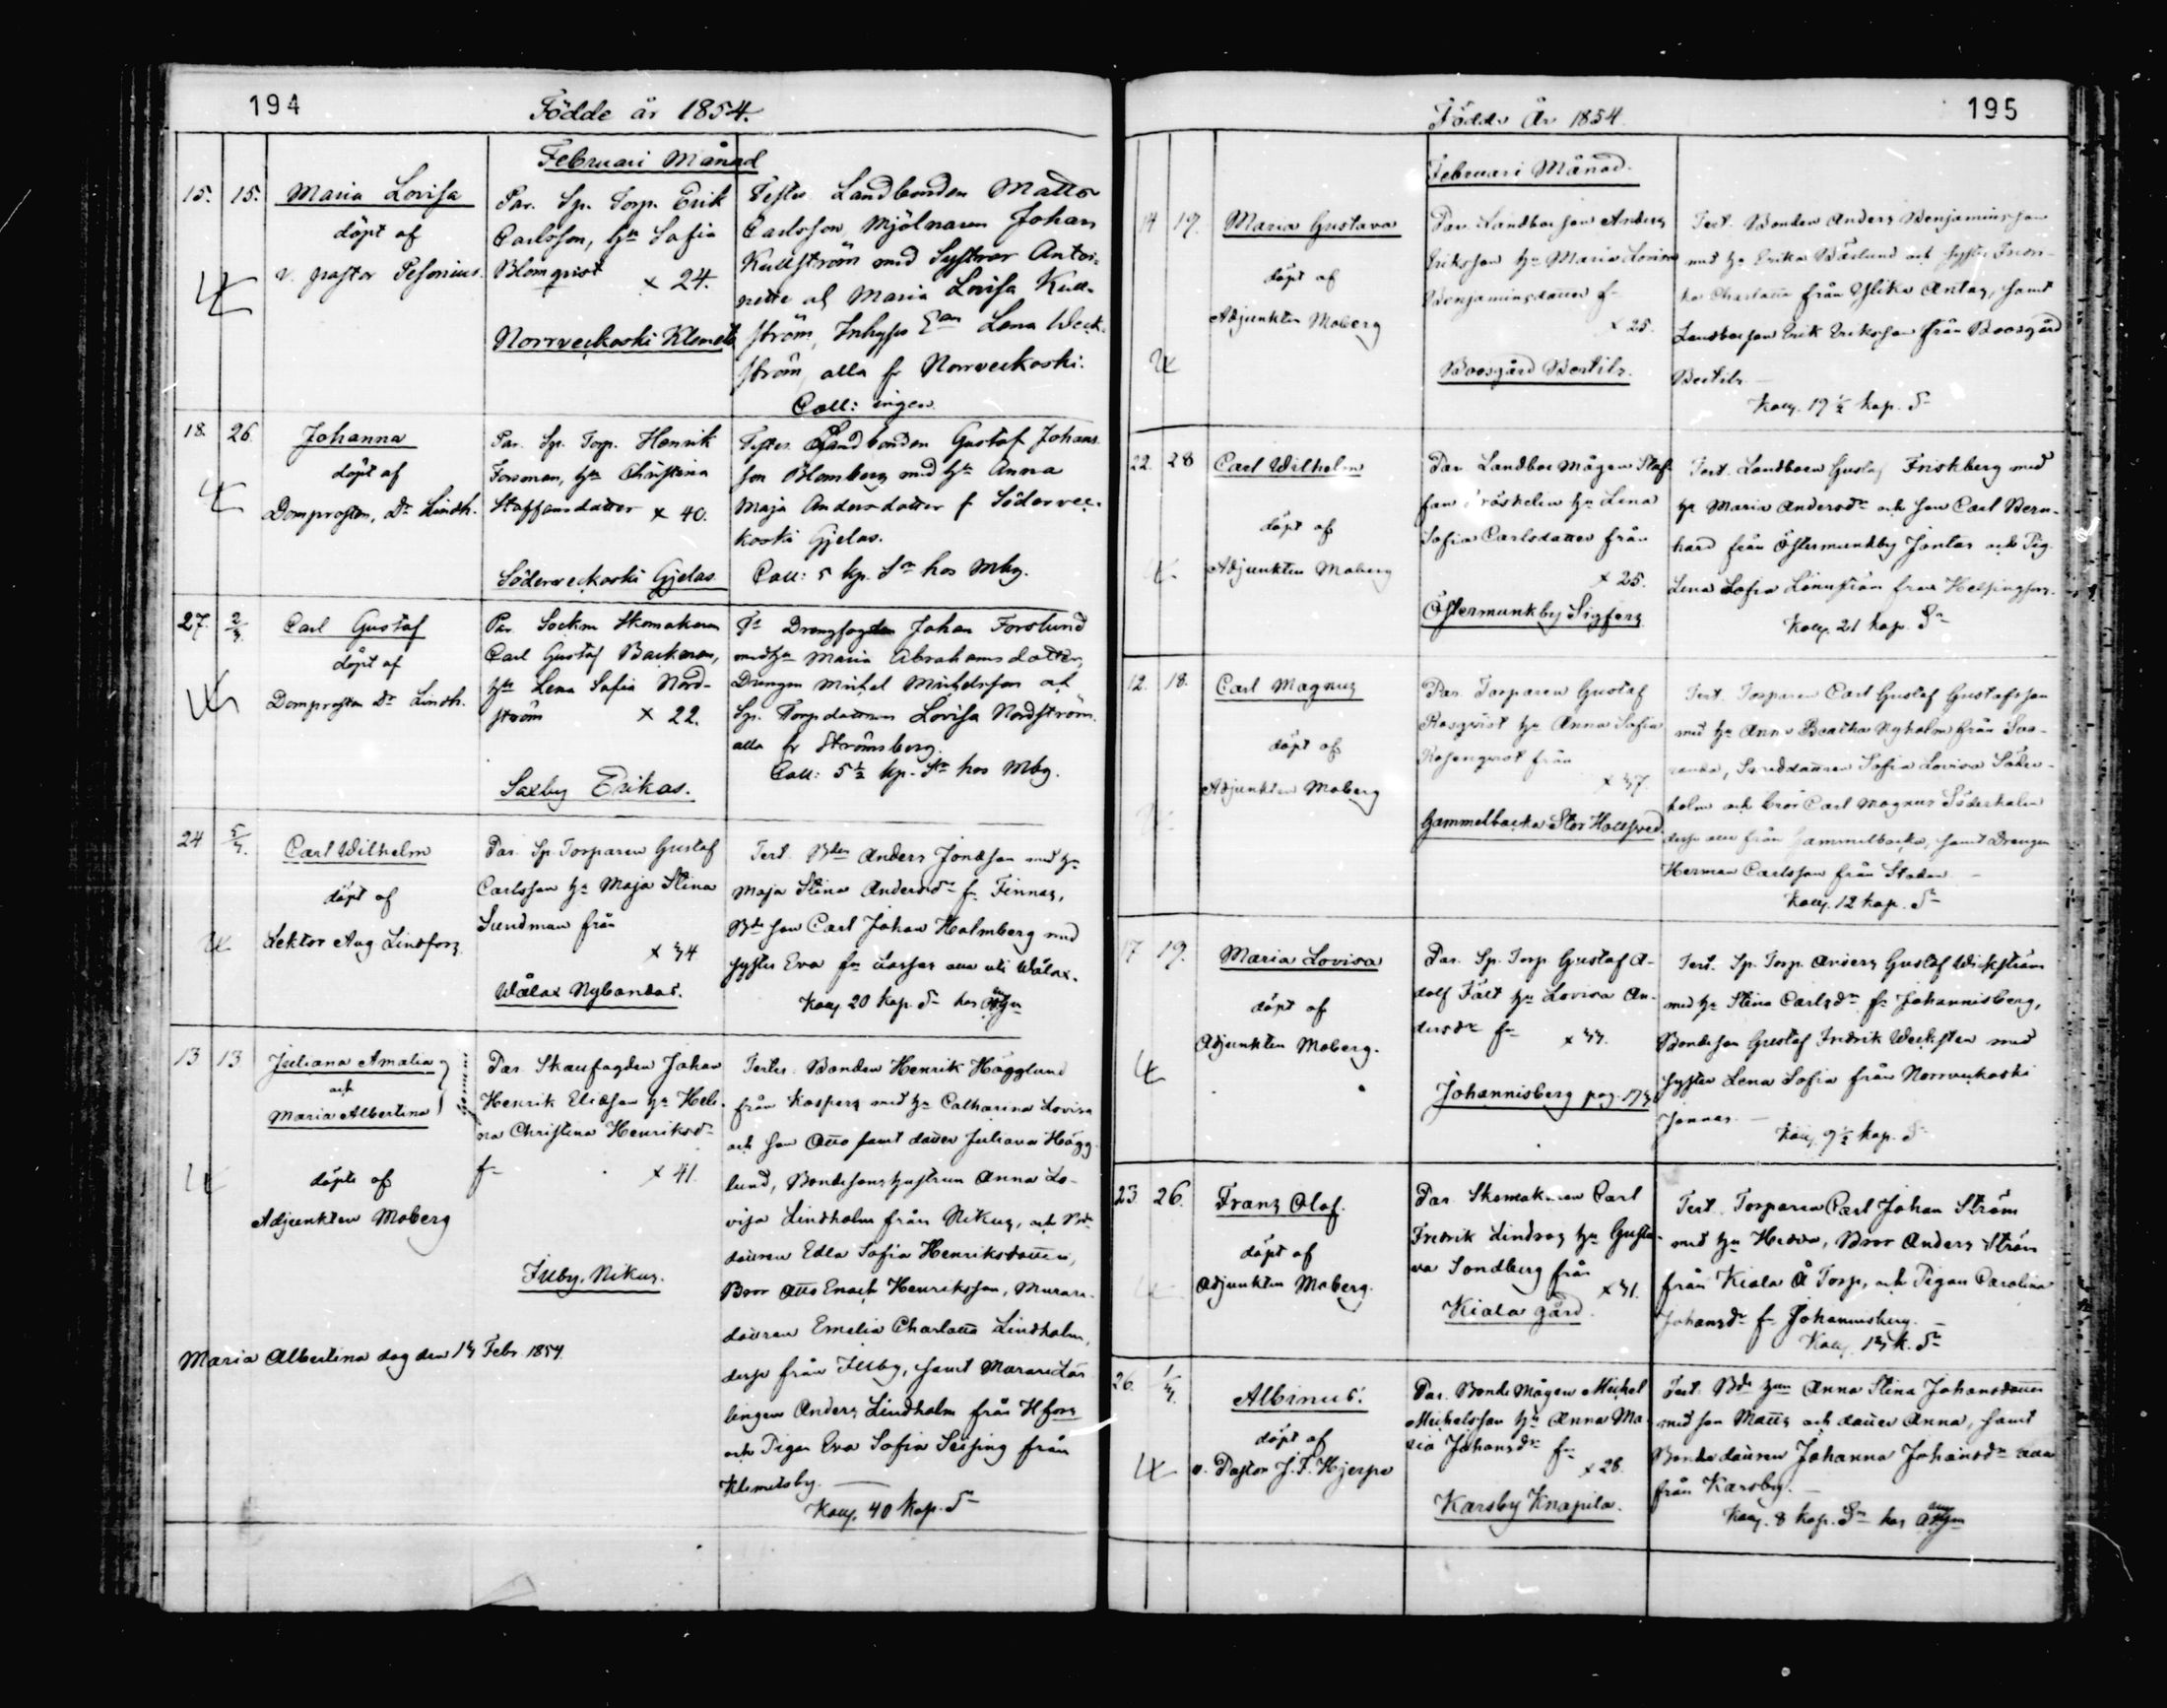 194
Födde år 1854.
Februari Månad
15. 15. Maria Lovisa
döpt af
v. pastor Pesonius.
Par. Sp. Torp. Erik
Carlsson, hu Sofia
Blomqvist x 24.
Norrveckoski Klemets
Testes Landbonden Matts
Carlsson, Mjölnaren Johan
Kullström med Systrar Antoi-
nette och Maria Lovisa Kull-
ström, Inhyses Lena Weck-
ström, alla fr Norrveckoski.
Coll: ingen
18. 26. Johanna
döpt af
Domprosten, Dr Lindh.
Par. Sp. Torp. Henrik
Forsman, hu Christina
Staffansdotter x 40.
Söderveckoski Gjelas
Testes Landbonden Gustaf Johans
son Blomberg med hu Anna
Maja Andersdotter f Södervec-
koski Gjelas.
Coll: 5 kp. Sr hos Mbg.
27. 2/3 Carl Gustaf
döpt af
Domprosten Dr Lindh.
Par. Sockn Skomakaren
Carl Gustaf Backman,
hu Lena Sofia Nord-
ström x 22.
Saxby Erikas.
Drengfogden Johan Forslund
med hu Maria Abrahamsdotter,
Drengen Michel Michelsson och
Sp. Torpdottren Lovisa Nordström
alla fr Strömsberg.
Coll: 5½ kp. Sr hos Mbg.
24 5/3. Carl Wilhelm
döpt af
Lektor Aug Lindfors
Par. Sp. Torparen Gustaf
Carlsson hu Maja Stina
Sundman från
x 34
Wålax Nybondas.
Test. Anders Jonasson med hu
Maja Stina Andersdr fr Finnas,
Bde son Carl Johan Holmberg med
syster Eva fr alla uti Wålax.
Koll. 20 kop. Sr hos
13 13 Juliana Amalia
och
Maria Albertina
döpte af
Adjunkten Moberg
Par. Skaufogden Johan
Henrik Eliasson hu Hele-
na Christina Henriksdr
fr x 41.
Illby, Nikus.
Testes Bonden Henrik Hägglund
från Kaspers med hu Catharina Lovisa
och son Otto samt dotter Juliana Hägg-
lund, Bondesons hustrun Anna Lo-
visa Lindholm från Nikus, och Bde
dottren Edla Sofia Henriksdotter,
Bror Otto Enoch Henriksson, Murare-
dottren Emelia Charlotta Lindholm,
desse från Illby, samt Murare Lär-
lingen Anders Lindholm från Hfors
och Pigan Eva Sofia från
Klemetsby.
Koll. 40 kop. Sr
Maria Albertina dog den 13 Febr. 1854.
195
Födde År 1854.
Februari Månad.
14 19. Maria Gustava
döpt af
Adjunkten Moberg
Par. Landboeson Anders
Eriksson hu Maria Lovisa
Benjaminsdotter fr
x 25.
Boesgård Bertils.
Test. Bonden Anders Benjaminsson
med hu Erika Bäcklund och syster Fredri-
ka Charlotta från Ylike Antas, samt
Landboeson Erik Eriksson från Boesgård
Bertils.
Koll. 19½ kop. Sr
22. 28 Carl Wilhelm
döpt af
Adjunkten Moberg
Par. Landboe Mågen Staf-
fan hu Lena
Sofia Carlsdotter från
x 25.
Östermunkby Sigfers
Test. Landboen Gustaf Friskberg med
hu Maria Andersdr och son Carl Bern-
hard från Östermunkby Jontas och Pig.
Lena Sofia Lönnström från Helsingfors.
Koll. 21 kop. Sr
12. 18. Carl Magnus
döpt af
Adjunkten Moberg
Par. Torparen Gustaf
Rosqvist hu Anna Sofia
Rosenqvist från
x 37.
Gammelbacka Stor
Test. Torparen Carl Gustaf Gustafsson
med hu Anna Beatha Nyholm från
Sofia Lovisa Söder-
holm och bror Carl Magnus Söderholm
desse alla från Gammelbacka, samt Drengen
Herman Carlsson från Staden
Koll. 12 kop. Sr
17 19. Maria Lovisa
döpt af
Adjunkten Moberg.
Par. Sp. Torp. Gustaf A-
dolf Fält hu Lovisa An-
dersdr fr x 33.
Johannisberg pag. 173
Test. Sp. Torp. Anders Gustaf Wickström
med hu Stina Carlsdr fr Johannisberg,
Bondeson Gustaf Fredrik Weckstén med
syster Lena Sofia från Norrveckoski
Jonnas.
Koll. 9½ kop. Sr
23. 26. Franz Olof.
döpt af
Adjunkten Moberg.
Par. Skomakaren Carl
Fredrik Lindroos hu Gusta-
va Sondberg från
x 31.
Kiala gård.
Test. Torparen Carl Johan Ström
med hu Hedda, Bror Anders Ström
från Kiala Å Torp, och Pigan Carolina
Johansdr fr Johannisberg.
Koll. 13 k. Sr
26. 1/3. Albinus.
döpt af
v. Pastor J. F. Hjerpe
Par. Bonde Mågen Michel
Michelsson hu Anna Ma-
ria Johansdr fr
x 28.
Karsby Knapila.
Test. Bde hun Anna Stina Johansdotter
med son Matts och dotter Anna, samt
Bondedottren Johanna Johansdr alla
från Karsby.
Koll. 8 kop. Sr hos